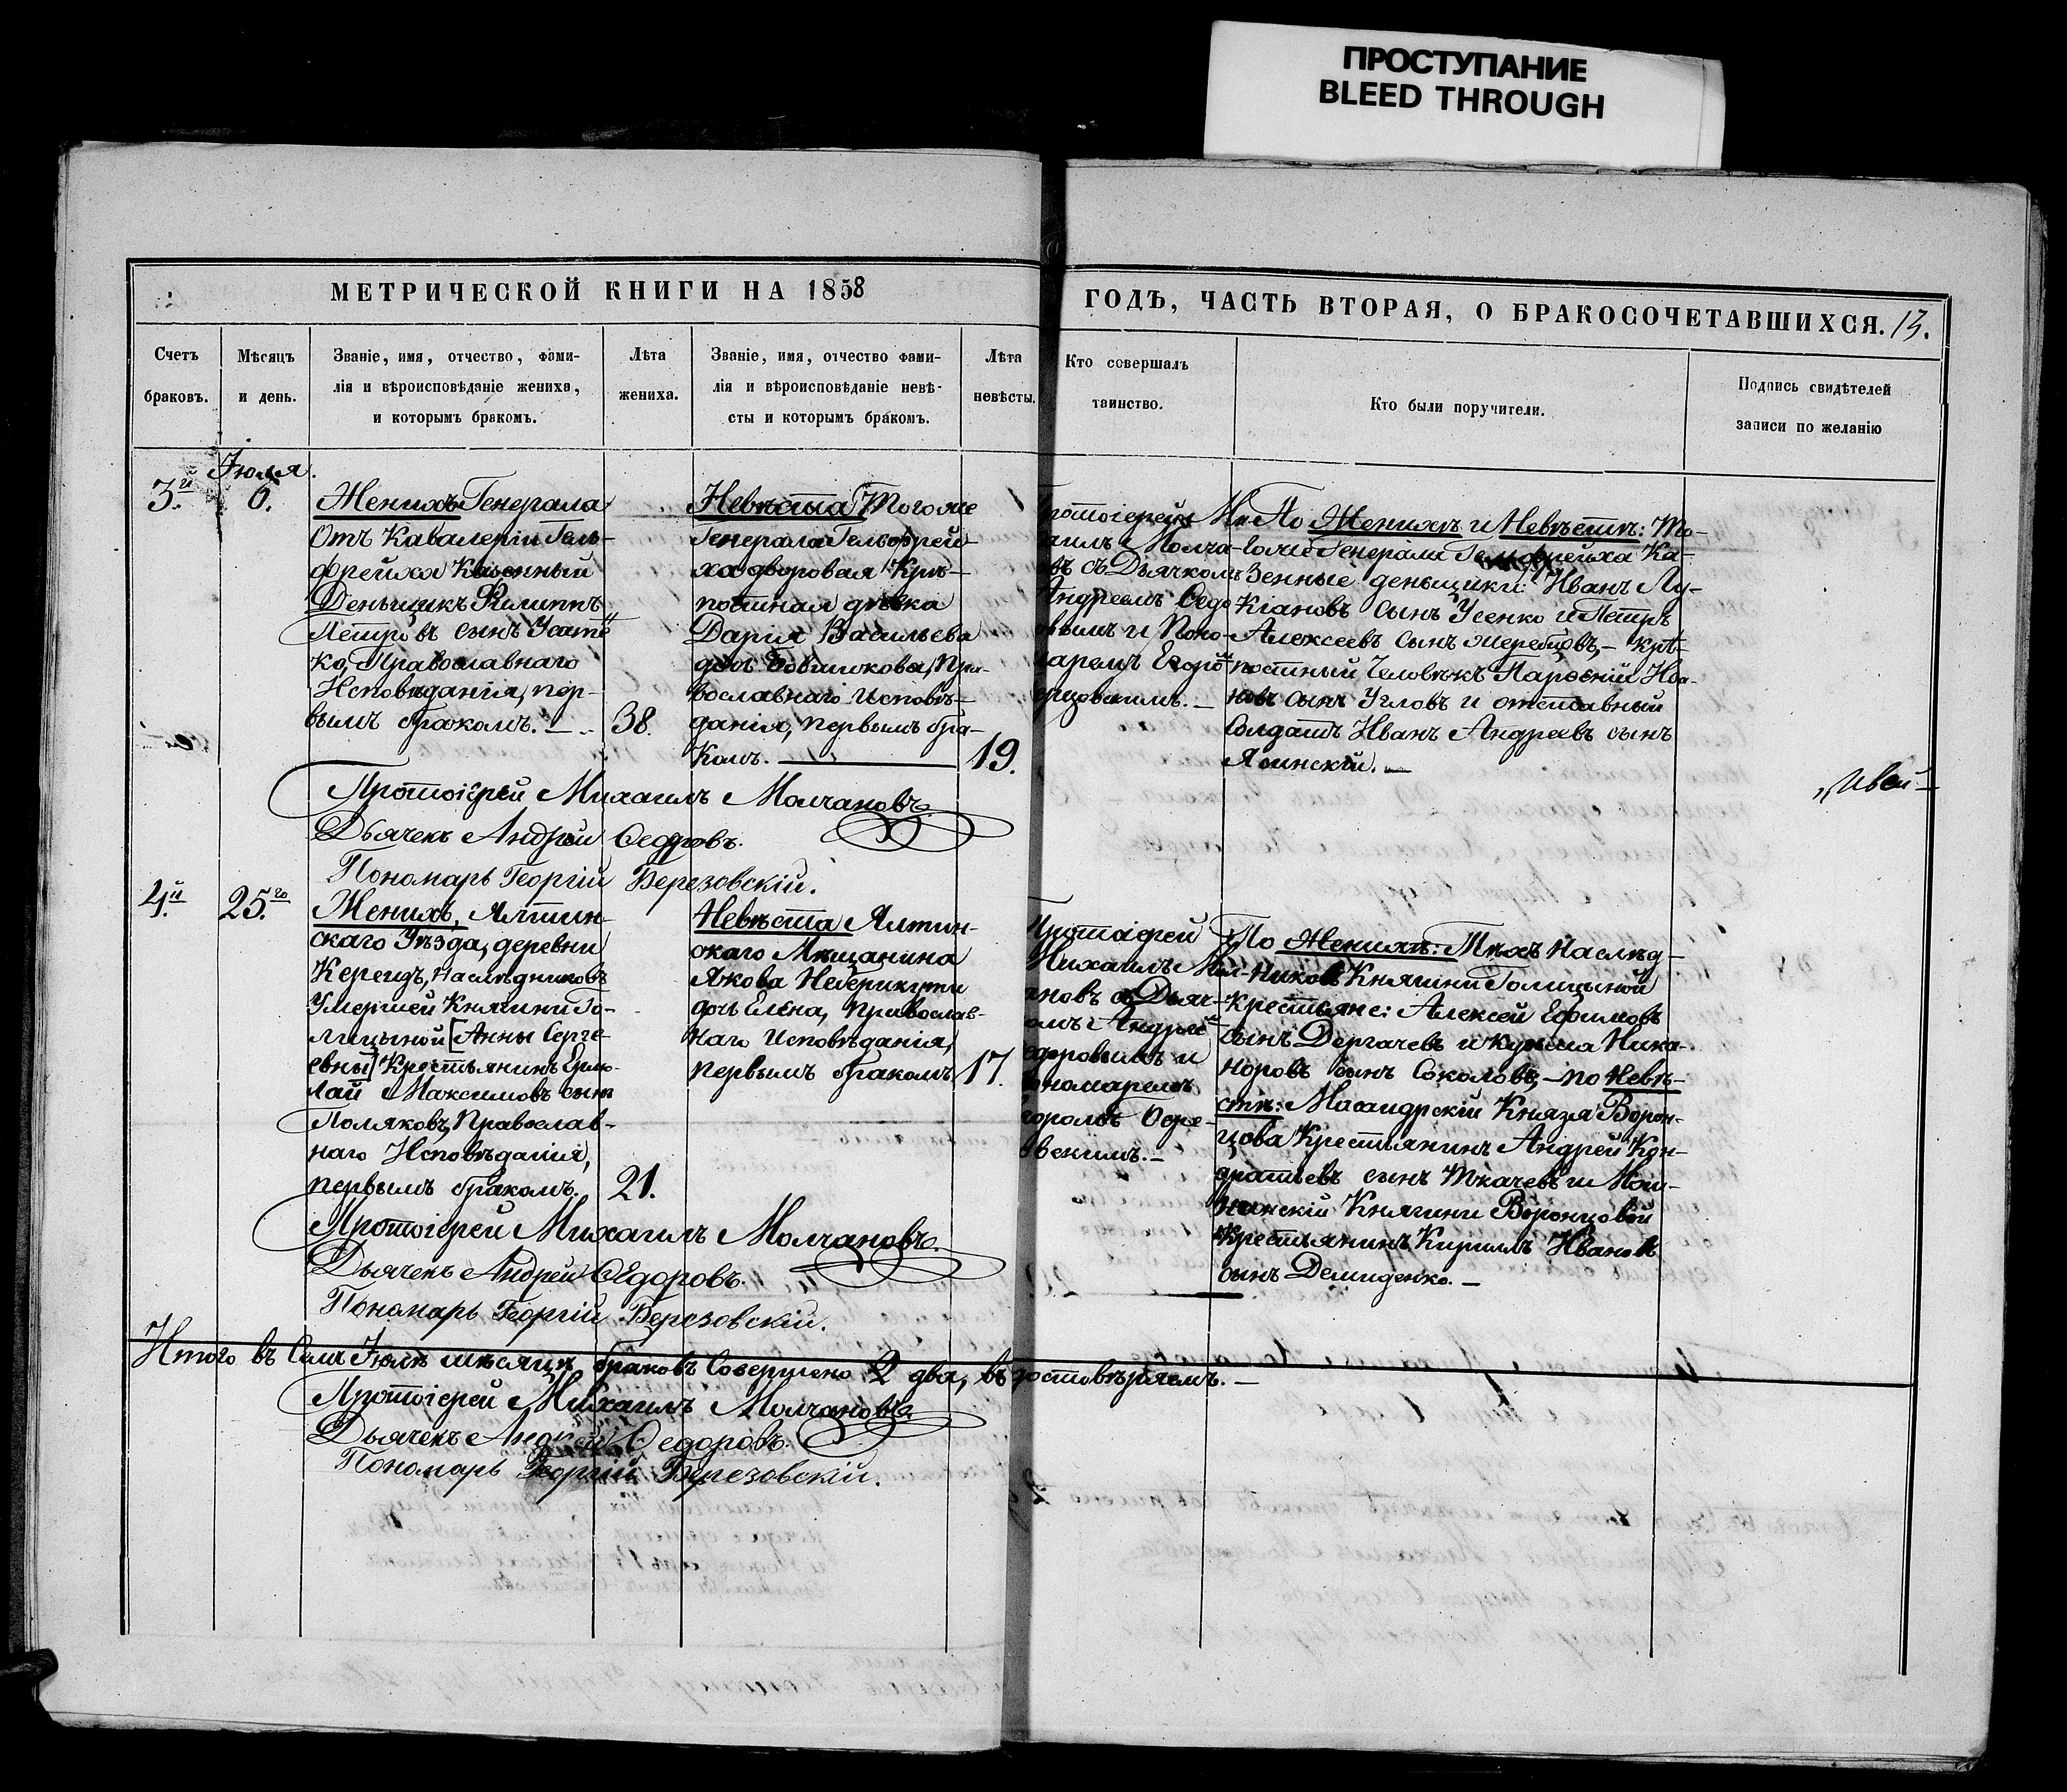 ПРОСТУПАНИЕ
BLEED THROUGH
МЕТРИЧЕСКОЙ КНИГИ НА 1858
ГОДЪ, ЧАСТЬ ВТОРАЯ, О БРАКОСОЧЕТАВШИХСЯ. 13.
Счетъ
браковъ.
Мѣсяцъ
и день.
Званіе, имя, отчество, фами-
лія и вѣроисповѣданіе жениха,
и которымъ бракомъ.
Лѣта
жениха.
Званіе, имя, отчество фами-
лія и вѣроисповѣданіе невѣ-
сты и которымъ бракомъ.
Лѣта
невѣсты.
Кто совершалъ
таинство.
Кто были поручители.
Подпись свидѣтелей
записи по желанію
Іюля.
3й
6.
Женихъ Генерала
Отъ Кавалеріи Гель-
фрейха Казенный
Деньщикъ Филиппъ
Петровъ сынъ Усате
ко, Православнаго
Исповѣданія, пер-
вымъ бракомъ.
38.
Невѣста Тогоже
Генерала Гельфрей-
ха дворовая Крѣ-
постная дѣвка
Дарія Васильева
дочь, Пра-
вославнаго Исповѣ-
данія, первымъ бра-
комъ.
19.
Протоіерей Ми
хаилъ Молча-
овъ съ Дьячкомъ
Андреемъ Ѳедо
овымъ и Поно-
аремъ Егоро
ерезовскимъ.
По Женихѣ и Невѣстѣ: То-
гоже Генерала Гельфрейха Ка-
зенные деньщики: Иванъ Лу-
кіановъ сынъ Усенко и Петръ
Алексеевъ сынъ Жеребцовъ, - крѣ-
постный Человѣкъ Парѳеній Ива-
новъ сынъ Угловъ и отставный
Солдатъ Иванъ Андреевъ сынъ
Ясинскій.
Протоіерей Михаилъ Молчановъ
Дьячекъ Андрей Ѳедоровъ.
Пономарь Георгій Березовскій.
4й
25.го
Женихъ, Ялтин-
скаго Уѣзда, деревни
Кереизъ, Наслѣдниковъ
Умершей Княгини Го-
лицыной [Анны Серге-
евны] Крестьянинъ Ермо-
лай Максимовъ сынъ
Поляковъ, Православ-
наго Исповѣданія,
первымъ бракомъ.
21.
Невѣста Ялтин-
скаго Мѣщанина
Якова
дочь Елена, Православ-
наго Исповѣданія,
первымъ бракомъ
17.
Протоіерей
Михаилъ Мол-
ановъ съ Дьяч-
омъ Андрей
едоровымъ и
ономаремъ
По Женихѣ: Тѣхъ Наслѣд-
никовъ Княгини Голицыной
крестьяне: Алексей Ефимовъ
сынъ Дергачевъ и Кузьма Ника-
норовъ сынъ Соколовъ, - по Невѣ-
стѣ: Масандрскій Князя Ворон-
цова Крестьянинъ Андрей Кон-
дратьевъ сынъ Ткачевъ и Мош-
нинскій Княгини Воронцовой
Крестьянинъ Кириллъ Ивановъ
сынъ Демиденко.
Протоіерей Михаилъ Молчановъ.
Дьячекъ Андрей Ѳедоровъ.
Пономарь Георгій Березовскій.
Итого въ Семъ Іюлѣ мѣсяцѣ браковъ Совершено 2 два,
Протоіерей Михаилъ Молчановъ
Дьячекъ Андрей Ѳедоровъ.
Пономарь Георгій Березовскій.